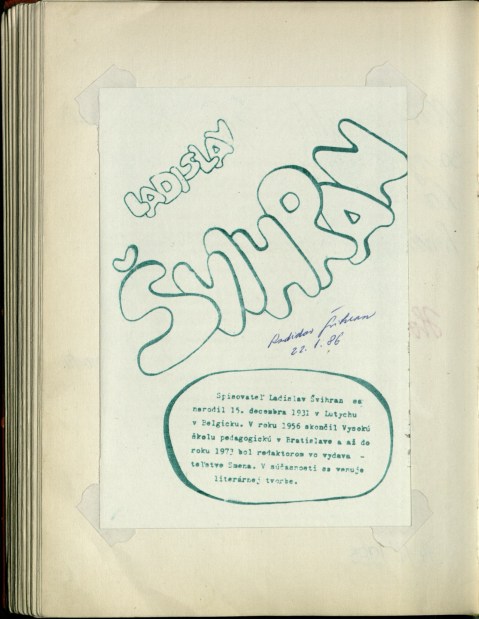 LADISLAV
ŠVIHRAN
Ladislav Švihran
22. 1. 86
Spisovateľ Ladislav Švihran sa
narodil 15. decembra 1931 v Lutychu
v Belgicku. V roku 1956 skončil Vysokú
školu pedagogickú v Bratislave a až do
roku 1972 bol redaktorom vo vydava -
teľstve Smena. V súčasnosti sa venuje
literárnej tvorbe.